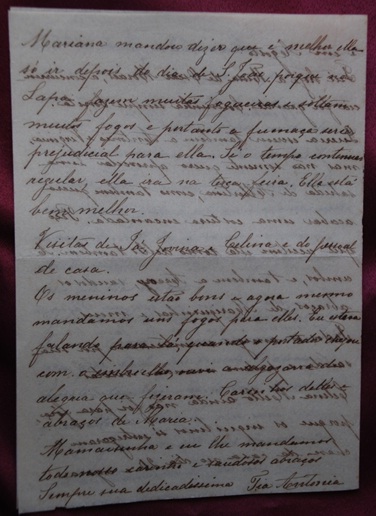 Marianna mandou dizer que é melhor ella
só ir depois do dia de S. João, porque
Lapa fazem muitas fogueiras e soltam
muitos fogos e portanto a fumaça será
prejudicial para ella. Si o tempo continuar
regular, ella irá na terça feira. Ella está
bem melhor.
Visitas de Iaiá Jovina e Celina e do pessoal
de casa.
Os meninos estão bons e agora mesmo
mandamos uns fogos para elles. Eu estou
falando quando o portador chegou
com o a algazarra de
alegria que fizeram. delles e
abraços de Maria.
Mamaesinha e eu lhe mandamos
todo nosso carinho e saudosos abraços
Sempre sua dedicadissima Tia